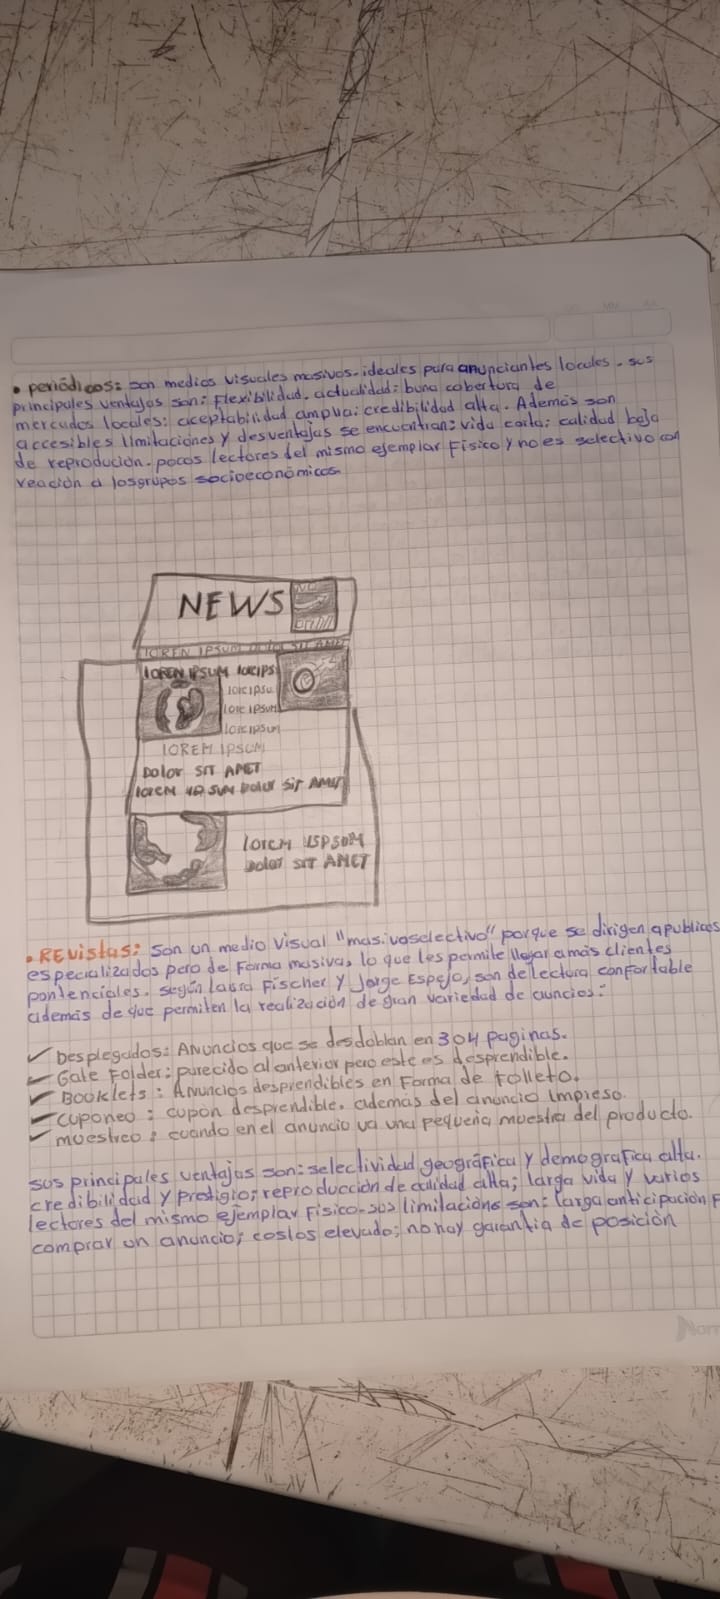 • periódicos: son medios visuales masivos-ideales para anunciantes locales. sus
principales ventajas son: flexibilidad. actualidad: buna cobertura de
mercados locales: aceptabilidad amplia: credibilidad alta. Además son
accesibles limitaciones y desventajas se encuentran: vida corta: calidad baja
de reproducion. pocos lectores del mismo ejemplar Fisico y no es selectivo con
reación a los grupos socioeconómicos
NEWS
LOREN IPSUM DOLOR SIT AMET
LOREN IPSUM LOREIPS
LOREIPSU
LOREIPSUM
LOREIPSUM
LOREM IPSUM
DOLOR SIT AMET
LOREM IPSUM DOLOR SIT AMET
LOREM ISPSUM
DOLOR SIT AMET
• REvistas: son un medio visual "masivoselectivo" porque se dirigen a publicos
especializados pero de Forma masiva, lo que les permite llegar a más clientes
pontenciales. según Laura Fischer y Jorge Espejo, son de lectura confortable
además de que permiten la realización de gran variedad de auncios:
✓ Desplegados: Anuncios que se desdoblan en 3 o 4 paginas.
✓ Gate Folder: parecido al anterior pero este es desprendible.
✓ Booklets: Anuncios desprendibles en Forma de Folleto.
✓ cuponeo: cupon desprendible. además del anuncio impreso.
✓ muestreo: cuando en el anuncio va una pequeña muestra del producto.
sus principales ventajas son: selectividad geográfica y demografica alta.
credibilidad y prestigio; reproducción de calidad alta; larga vida y varios
lectores del mismo ejemplar Fisico. sus limitacions son: larga anticipación P
comprar un anuncio; costos elevado; no hay garantia de posición
Norm